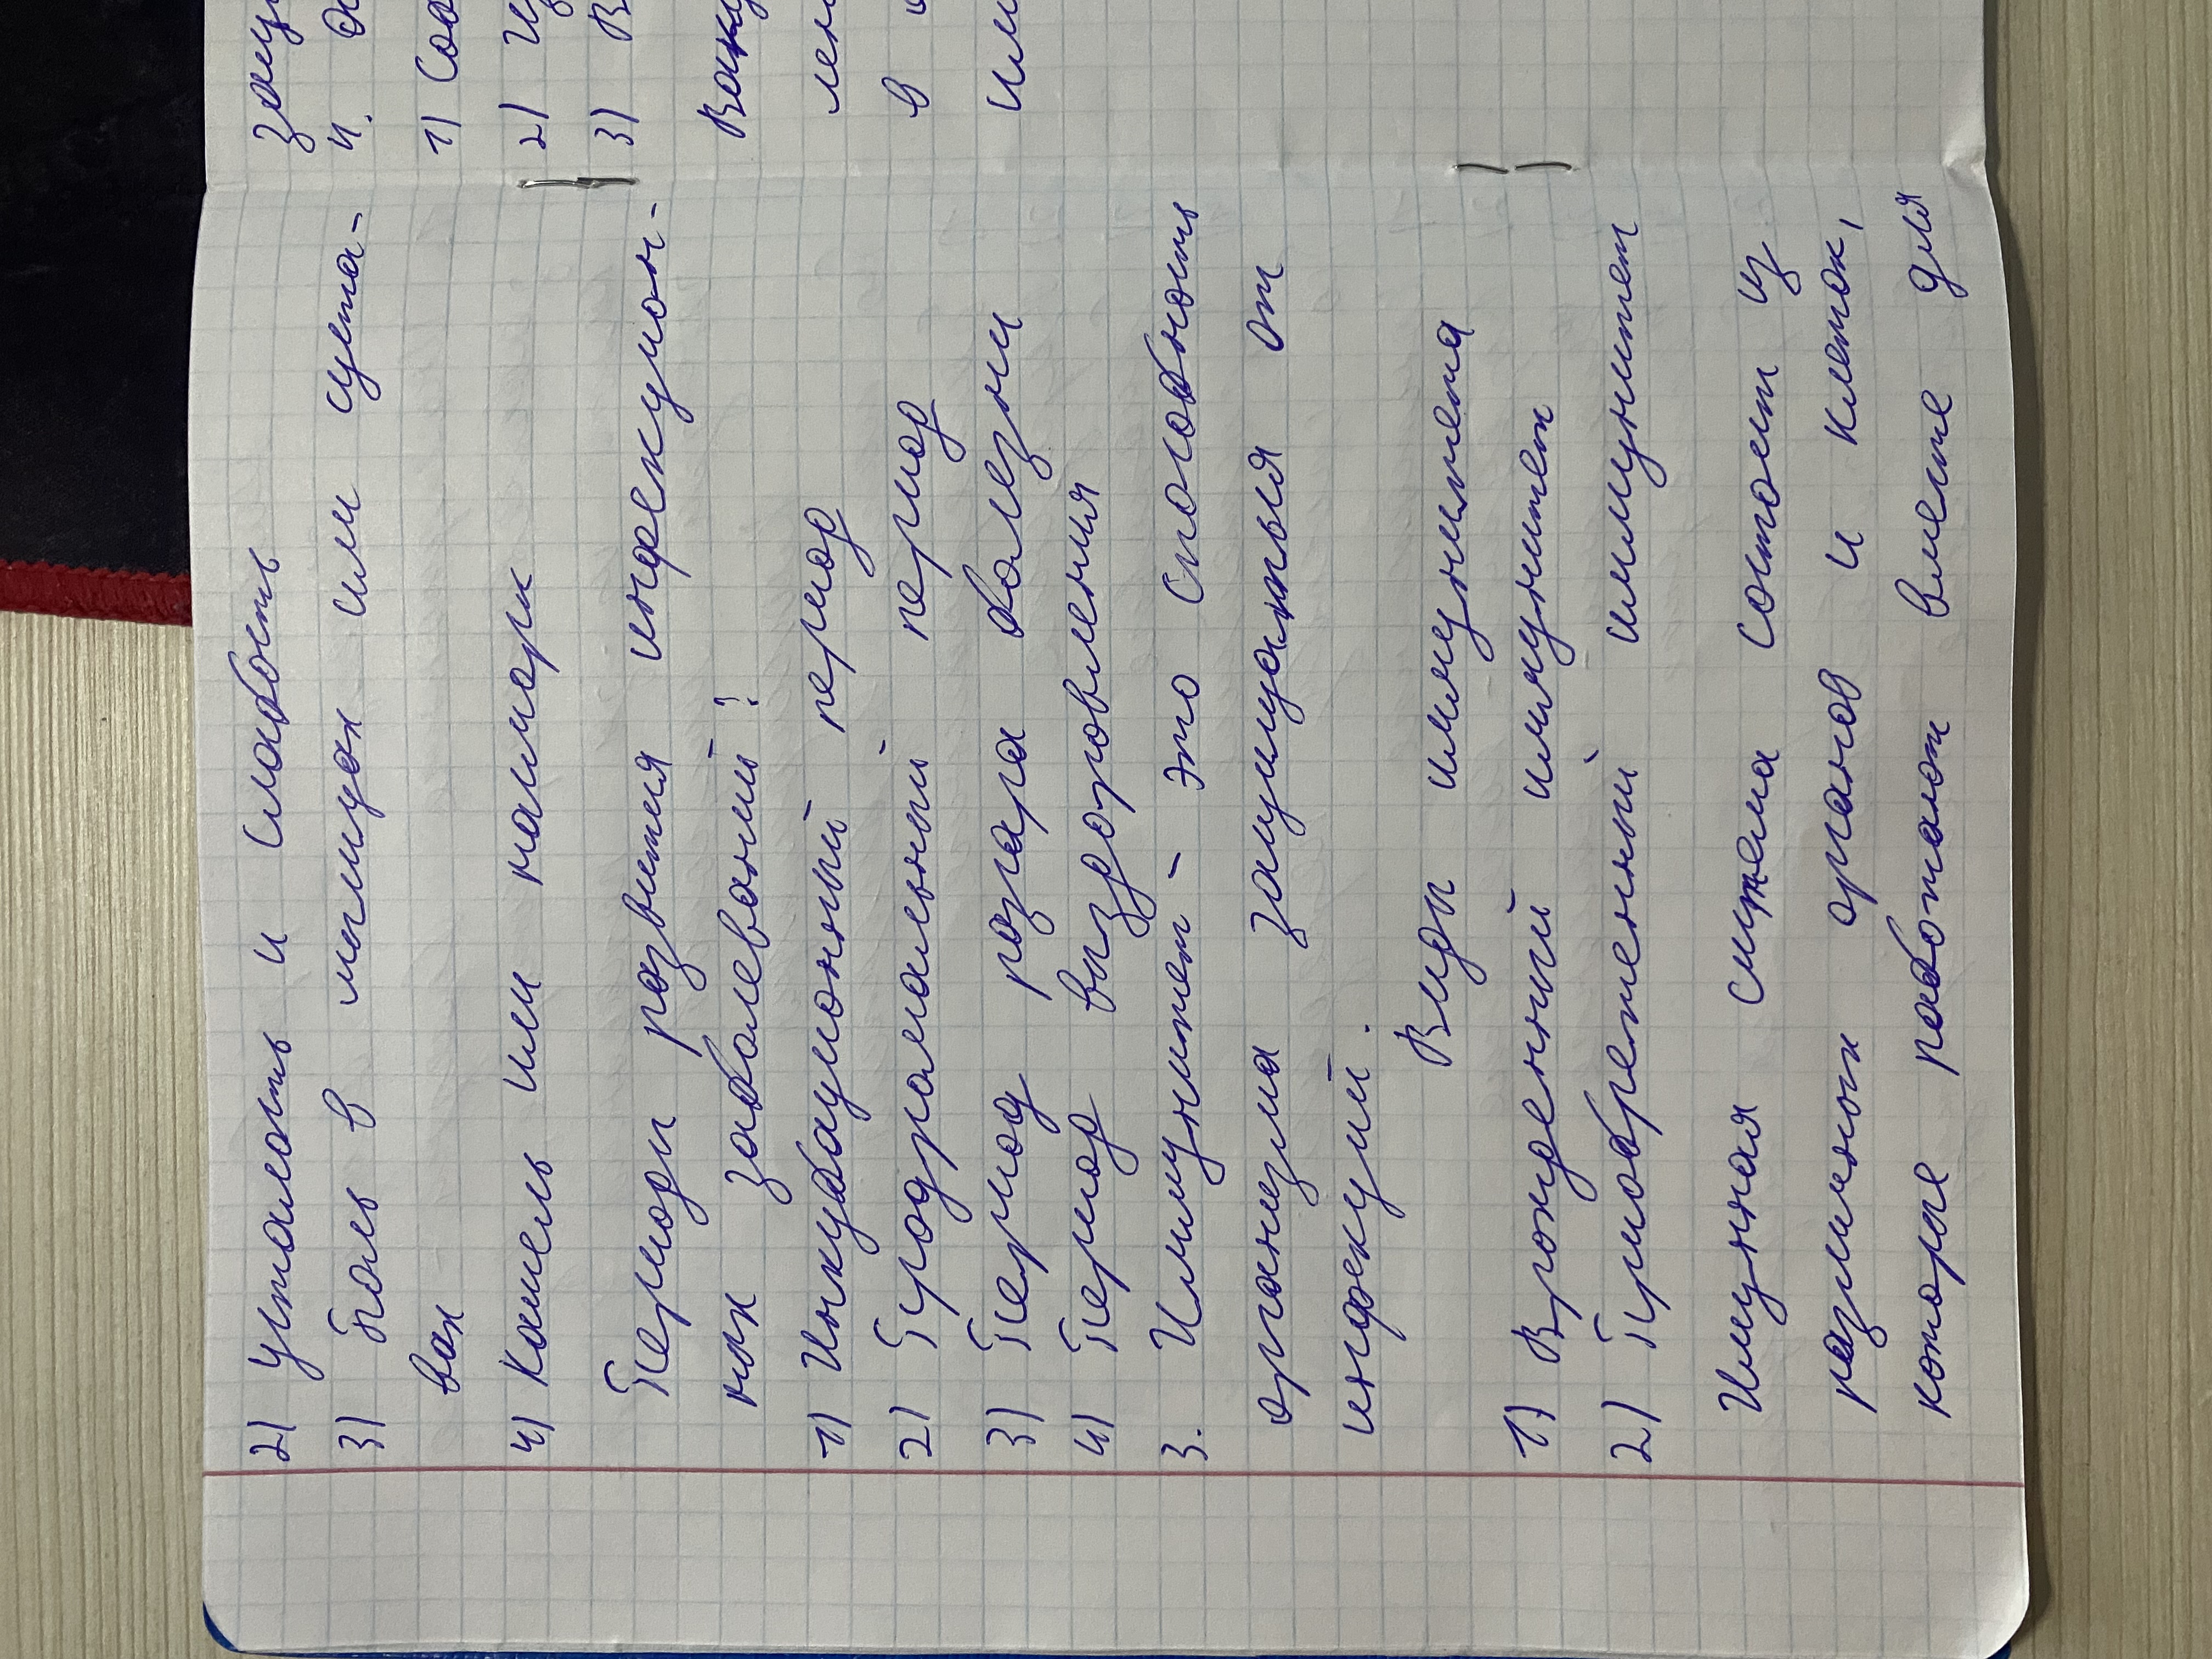 2) Усталость и слабость
3) Боль в мышцах или суста-
вах
4) Кашель или насморк
Периоды развития инфекцион-
ных заболеваний:
1) Инкубационный период
2) Продромальный период
3) Период разгара болезни
4) Период выздоровления
3. Иммунитет - это способность
организма защищаться от
инфекций.
Виды иммунитета
1) Врожденный иммунитет
2) Приобретенный иммунитет
Имунная система состоит из
различных органов и клеток,
которые работают вместе для
4.
1)
2)
3) В
в